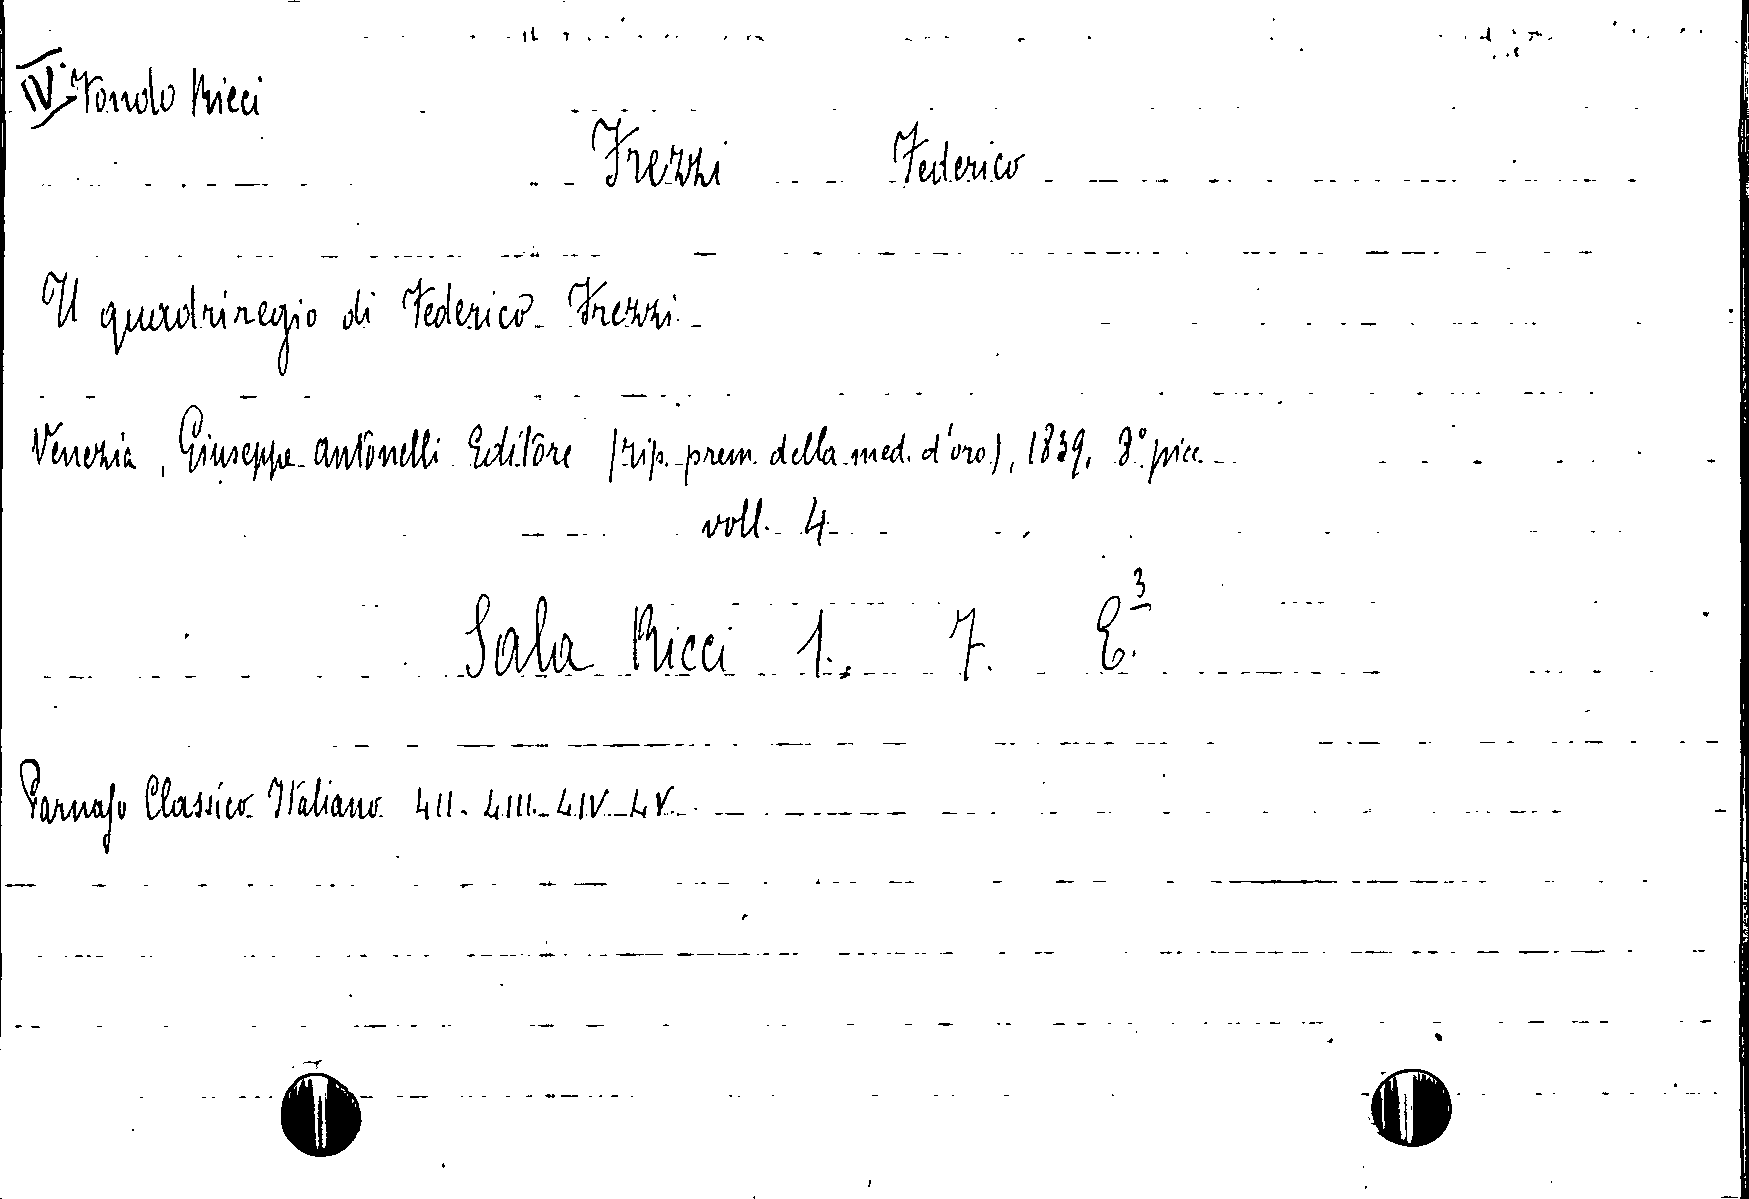 IV. Fondo Ricci
Frezzi Federico
Il quadriregio di Federico Frezzi
Venezia, Giuseppe Antonelli Editore (tip. prem. della med. d'oro), 1839, 8° picc.
voll. 4
Sala Ricci 1. 7. E.3
Parnaso Classico Italiano LII. LIII. LIV LV.